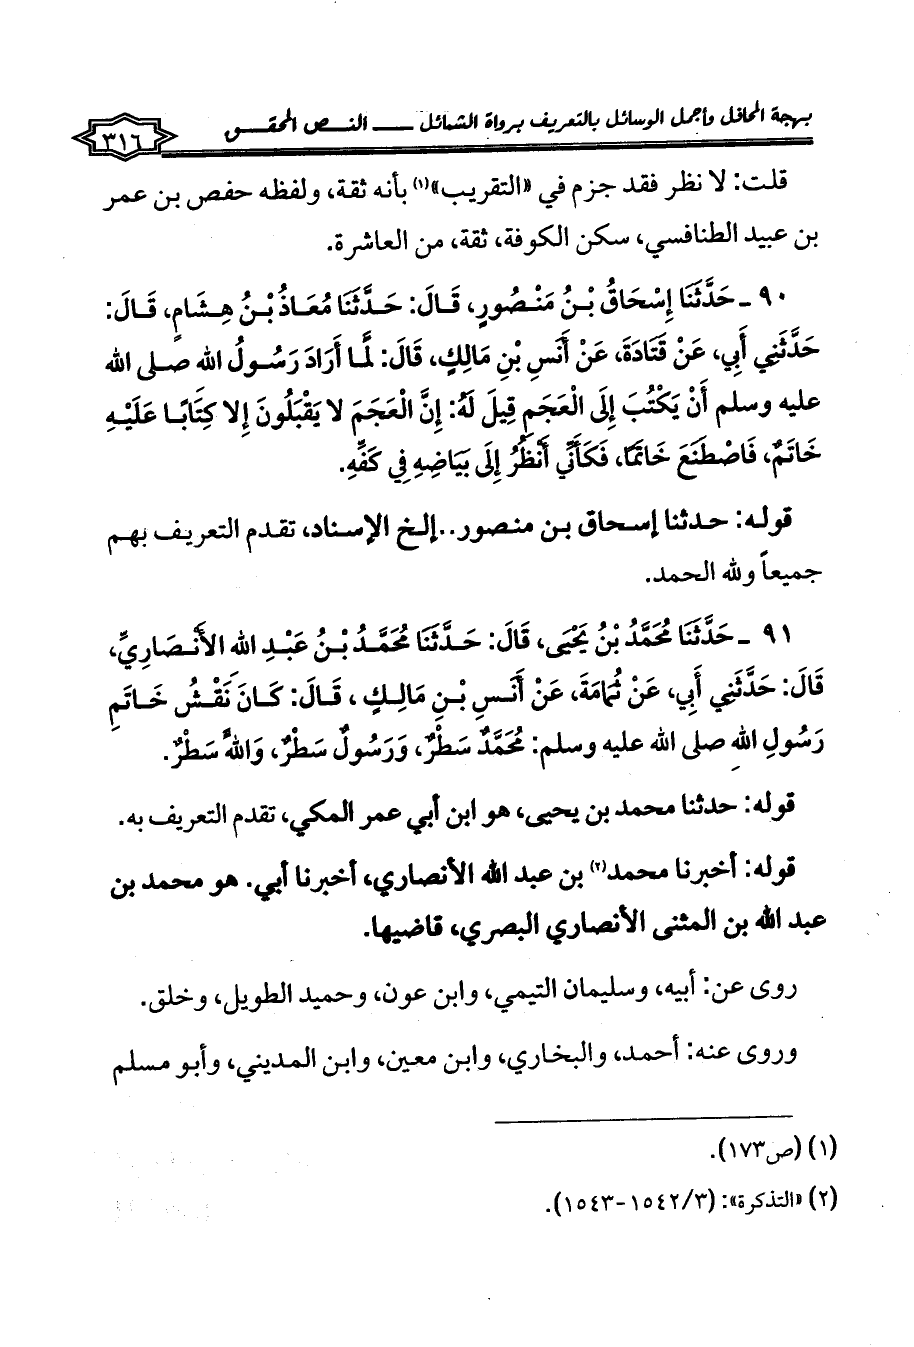 بهجة المحافل وأجمل الوسائل بالتعريف برواة الشمائل ــــ النـــص المحقـــق
٣١٦
قلت: لا نظر فقد جزم في «التقريب»(١) بأنه ثقة، ولفظه حفص بن عمر
بن عبيد الطنافسي، سكن الكوفة، ثقة، من العاشرة.
٩٠ ـ حَدَّثَنَا إِسْحَاقُ بْنُ مَنْصُورٍ، قَالَ: حَدَّثَنَا مُعَاذُ بْنُ هِشَامٍ، قَالَ:
حَدَّثَنِي أَبِي، عَنْ قَتَادَةَ، عَنْ أَنَسِ بْنِ مَالِكٍ، قَالَ: لَمَّا أَرَادَ رَسُولُ الله صلى الله
عليه وسلم أَنْ يَكْتُبَ إِلَى الْعَجَمِ قِيلَ لَهُ: إِنَّ الْعَجَمَ لا يَقْبَلُونَ إِلا كِتَابًا عَلَيْهِ
خَاتَمٌ، فَاصْطَنَعَ خَاتَمًا، فَكَأَنِّي أَنْظُرُ إِلَى بَيَاضِهِ فِي كَفِّهِ.
قوله: حدثنا إسحاق بن منصور..إلخ الإسناد، تقدم التعريف بهم
جميعاً ولله الحمد.
٩١ ـ حَدَّثَنَا مُحَمَّدُ بْنُ يَحْيَى، قَالَ: حَدَّثَنَا مُحَمَّدُ بْنُ عَبْدِ الله الأَنْصَارِيِّ،
قَالَ: حَدَّثَنِي أَبِي، عَنْ ثُمَامَةَ، عَنْ أَنَسِ بْنِ مَالِكٍ ، قَالَ: كَانَ نَقْشُ خَاتَمِ
رَسُولِ الله صلى الله عليه وسلم: مُحَمَّدٌ سَطْرٌ، وَرَسُولٌ سَطْرٌ، وَاللهُ سَطْرٌ.
قوله: حدثنا محمد بن يحيى، هو ابن أبي عمر المكي، تقدم التعريف به.
قوله: أخبرنا محمد(٢) بن عبد الله الأنصاري، أخبرنا أبي. هو محمد بن
عبد الله بن المثنى الأنصاري البصري، قاضيها.
روى عن: أبيه، وسليمان التيمي، وابن عون، وحميد الطويل، وخلق.
وروى عنه: أحمد، والبخاري، وابن معين، وابن المديني، وأبو مسلم
(١) (ص١٧٣).
(٢) «التذكرة»: (٣/١٥٤٢-١٥٤٣).